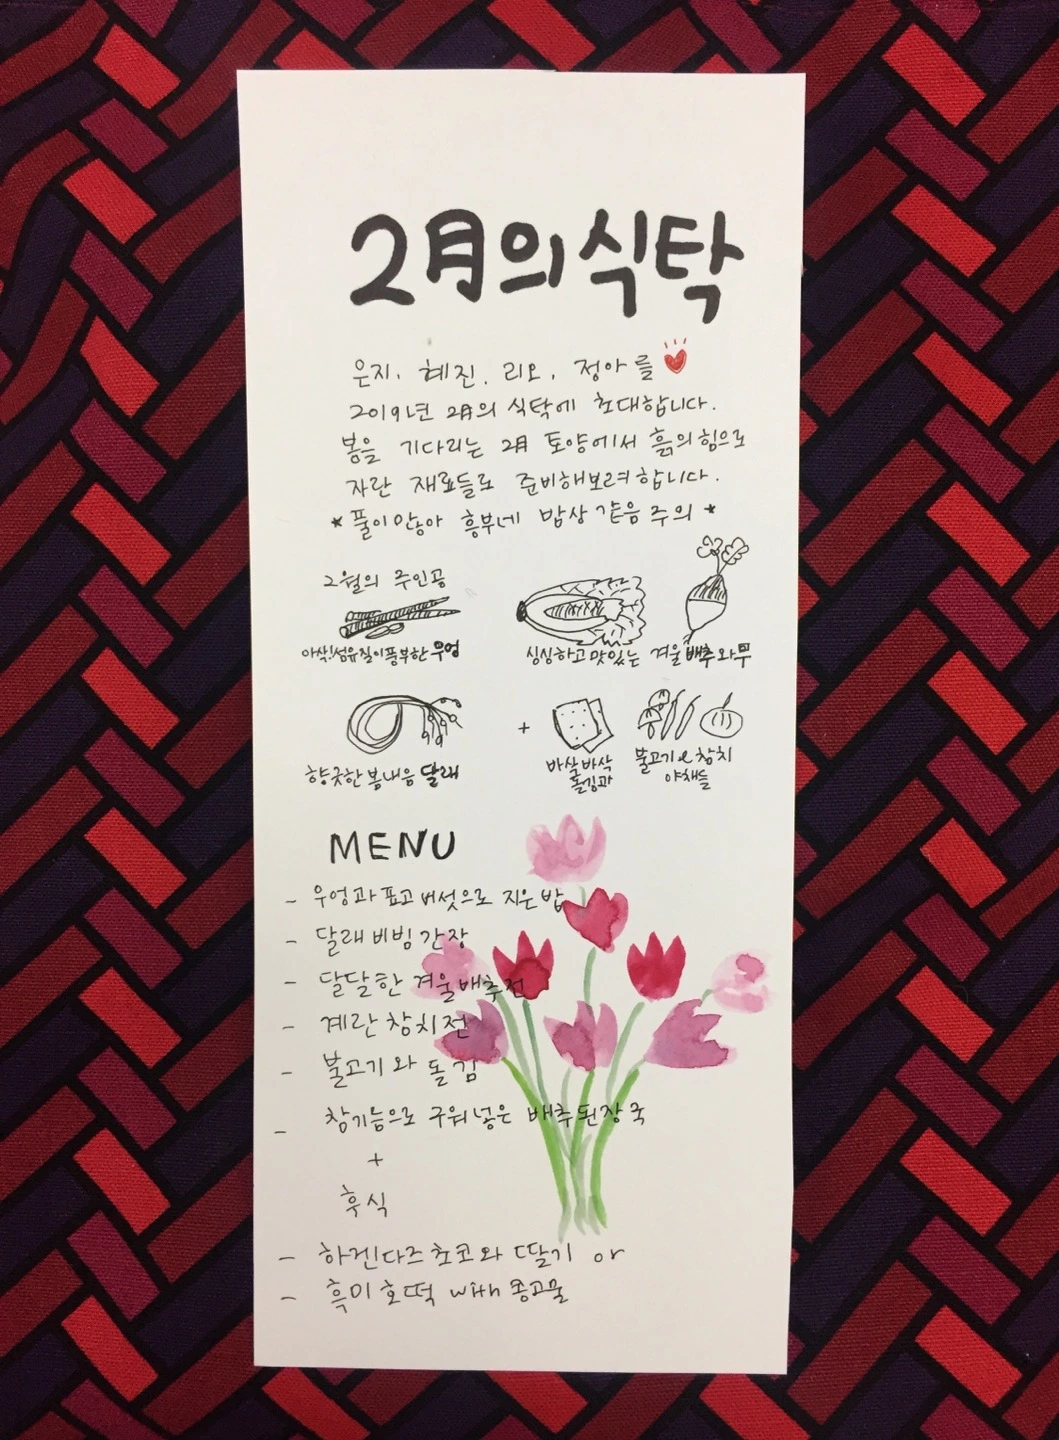 2月의 식탁
은지, 혜진, 리오, 정아를
2019년 2月의 식탁에 초대합니다.
봄을 기다리는 2月 토양에서 흙의 힘으로
자란 재료들로 준비해보려 합니다.
* 풀이 많아 흥부네 밥상 같음 주의 *
2월의 주인공
아삭! 섬유질이 풍부한 우엉
싱싱하고 맛있는 겨울 배추와 무
향긋한 봄내음 달래
+
바삭바삭
돌김과
불고기 & 참치
야채들
MENU
- 우엉과 표고버섯으로 지은 밥
- 달래 비빔 간장
- 달달한 겨울 배추전
- 계란 참치전
- 불고기와 돌김
- 참기름으로 구워 넣은 배추 된장국
+
후식
- 하겐다즈 초코와 딸기 or
- 흑미 호떡 with 콩고물